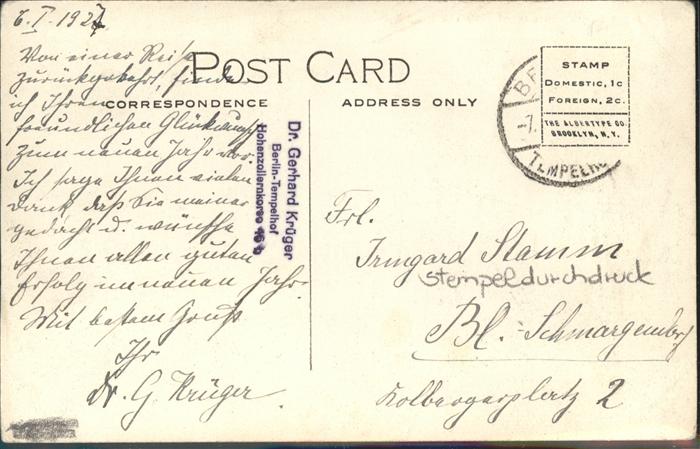 6. I. 1927
POST CARD
CORRESPONDENCE
ADDRESS ONLY
STAMP
DOMESTIC, 1C
FOREIGN, 2C.
THE ALBERTYPE CO.
BROOKLYN, N.Y.
BE
-7.
TEMPELHO
Von einer Reise
zurückgekehrt, finde
ich Ihren
freundlichen Glückwunsch
zum neuen Jahr vor.
Ich sage Ihnen vielen
Dank daß Sie meiner
gedacht u. wünsche
Ihnen allen guten
Erfolg im neuen Jahr.
Mit bestem Gruß
Ihr
Dr. G. Krüger
Dr. Gerhard Krüger
Berlin-Tempelhof
Hohenzollernkorso
Frl.
Irmgard Stamm
Stempeldurchdruck
Bl.-Schmargendorf
Kolbergerplatz 2